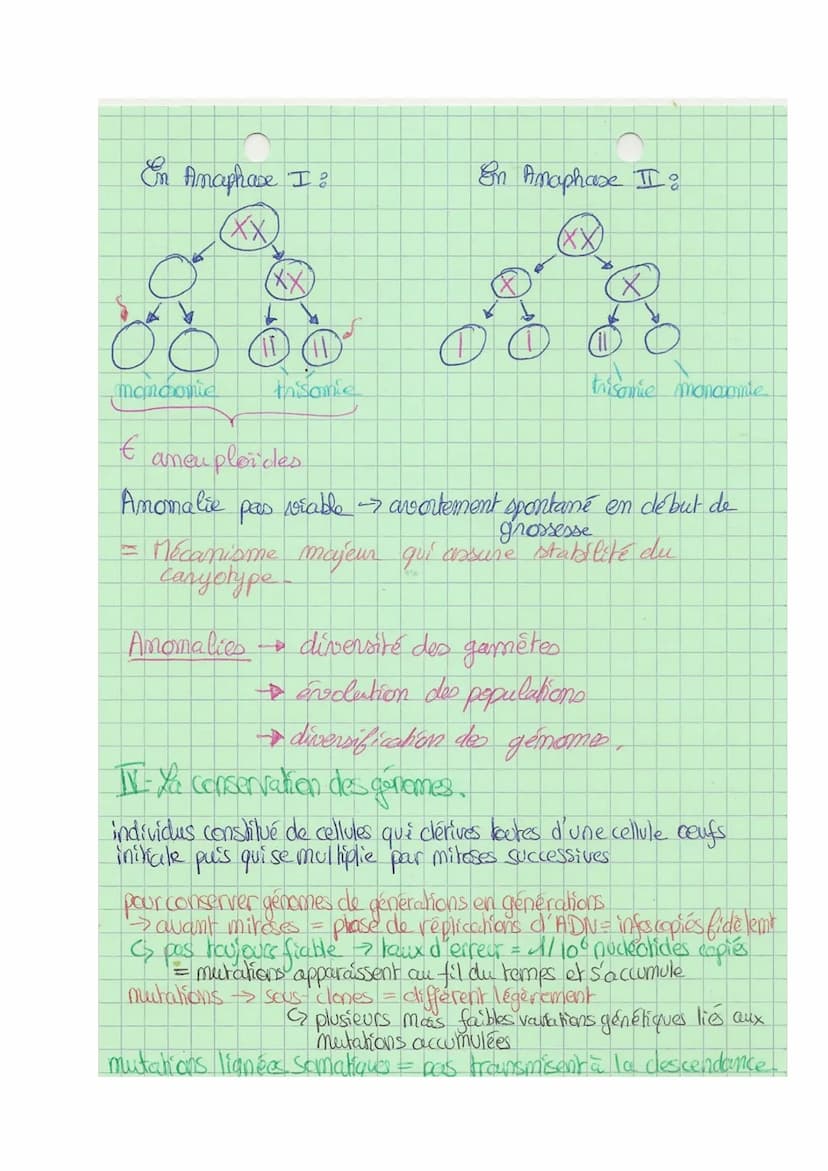 En Anaphase I :
En Anaphase II :
XX
XX
XX
X
X
II
II
I
I
II
monosomie
trisomie
trisomie
monosomie
€ aneuploïdes
Anomalie pas viable → avortement spontané en début de
grossesse
= Mécanisme majeur qui assure stabilité du
caryotype.
Anomalies → diversité des gamètes
→ évolution des populations
→ diversification des génomes.
IV- La conservation des génomes.
individus constitué de cellules qui dérives toutes d'une cellule œufs
initiale puis qui se multiplie par mitoses successives
pour conserver génomes de générations en générations
→ avant mitoses = phase de réplications d'ADN = infos copiés fidèlemt
↪ pas toujours fiable → taux d'erreur = 1/10⁶ nucléotides copiés
= mutations apparaissent au fil du temps et s'accumule
mutations → sous-clones = différent légèrement
↪ plusieurs mais faibles variations génétiques liés aux
mutations accumulées
mutations lignées somatiques = pas transmisent à la descendance.